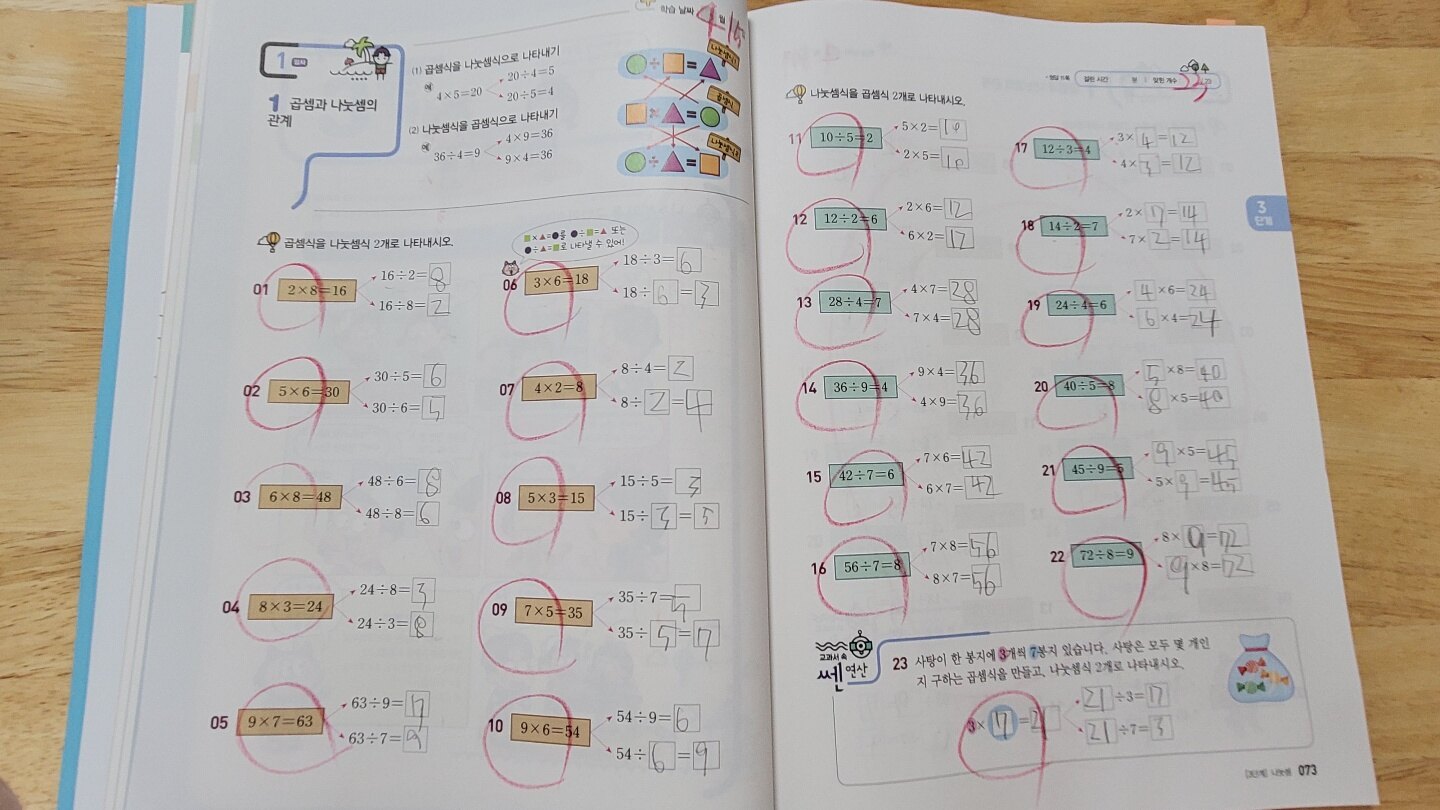 학습 날짜 4월 15
1 일차
1 곱셈과 나눗셈의
관계
(1) 곱셈식을 나눗셈식으로 나타내기
예 4×5=20
20÷4=5
20÷5=4
(2) 나눗셈식을 곱셈식으로 나타내기
예 36÷4=9
4×9=36
9×4=36
÷ = 나눗셈식1
× = 곱셈식
÷ = 나눗셈식2
곱셈식을 나눗셈식 2개로 나타내시오.
■×▲=●를 ●÷■=▲ 또는
●÷▲=■로 나타낼 수 있어!
01 2×8=16
16÷2=8
16÷8=2
02 5×6=30
30÷5=6
30÷6=5
03 6×8=48
48÷6=8
48÷8=6
04 8×3=24
24÷8=3
24÷3=8
05 9×7=63
63÷9=7
63÷7=9
06 3×6=18
18÷3=6
18÷6=3
07 4×2=8
8÷4=2
8÷2=4
08 5×3=15
15÷5=3
15÷3=5
09 7×5=35
35÷7=5
35÷5=7
10 9×6=54
54÷9=6
54÷6=9
걸린 시간 분 | 맞힌 개수 23/23
나눗셈식을 곱셈식 2개로 나타내시오.
11 10÷5=2
5×2=10
2×5=10
12 12÷2=6
2×6=12
6×2=12
13 28÷4=7
4×7=28
7×4=28
14 36÷9=4
9×4=36
4×9=36
15 42÷7=6
7×6=42
6×7=42
16 56÷7=8
7×8=56
8×7=56
17 12÷3=4
3×4=12
4×3=12
18 14÷2=7
2×7=14
7×2=14
19 24÷4=6
4×6=24
6×4=24
20 40÷5=8
5×8=40
8×5=40
21 45÷9=5
9×5=45
5×9=45
22 72÷8=9
8×9=72
9×8=72
3
단계
교과서 속
쎈 연산
23 사탕이 한 봉지에 3개씩 7봉지 있습니다. 사탕은 모두 몇 개인
지 구하는 곱셈식을 만들고, 나눗셈식 2개로 나타내시오.
3×7=21
21÷3=7
21÷7=3
[3단계] 나눗셈 073